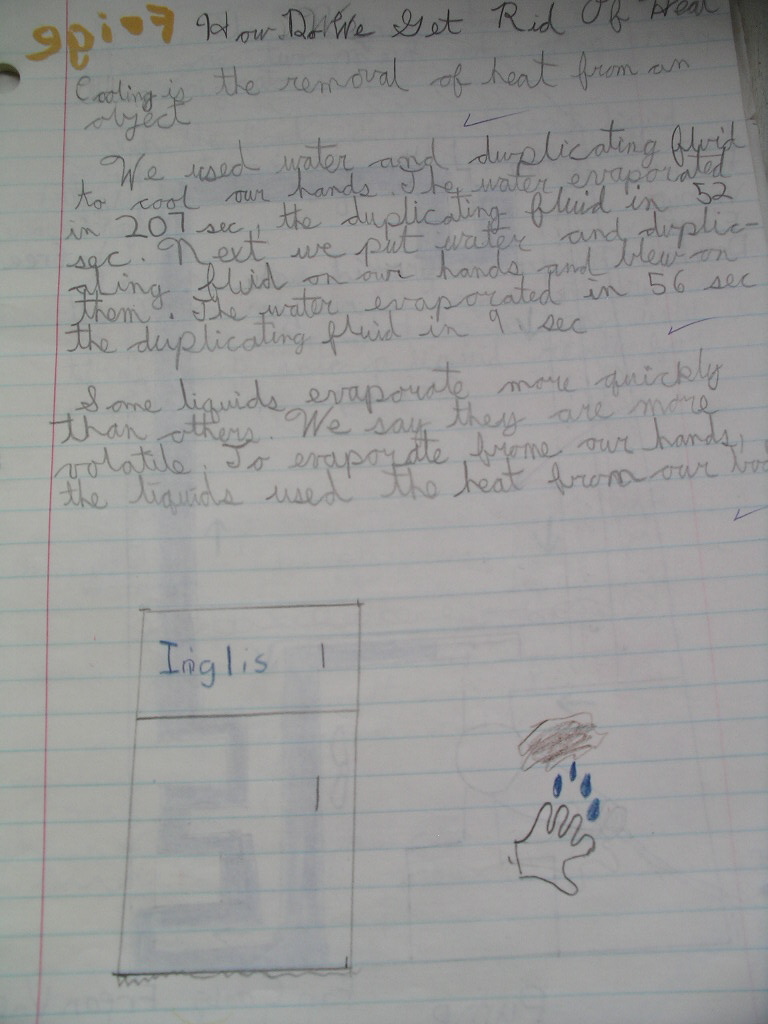 How Do We Get Rid Of Heat
Cooling is the removal of heat from an
object
We used water and duplicating fluid
to cool our hands. The water evaporated
in 207 sec, the duplicating fluid in 52
sec. Next we put water and duplic-
ating fluid on our hands and blew on
them. The water evaporated in 56 sec
the duplicating fluid in 9 sec
Some liquids evaporate more quickly
than others. We say they are more
volatile. To evaporate frome our hands,
the liquids used the heat from our
Inglis